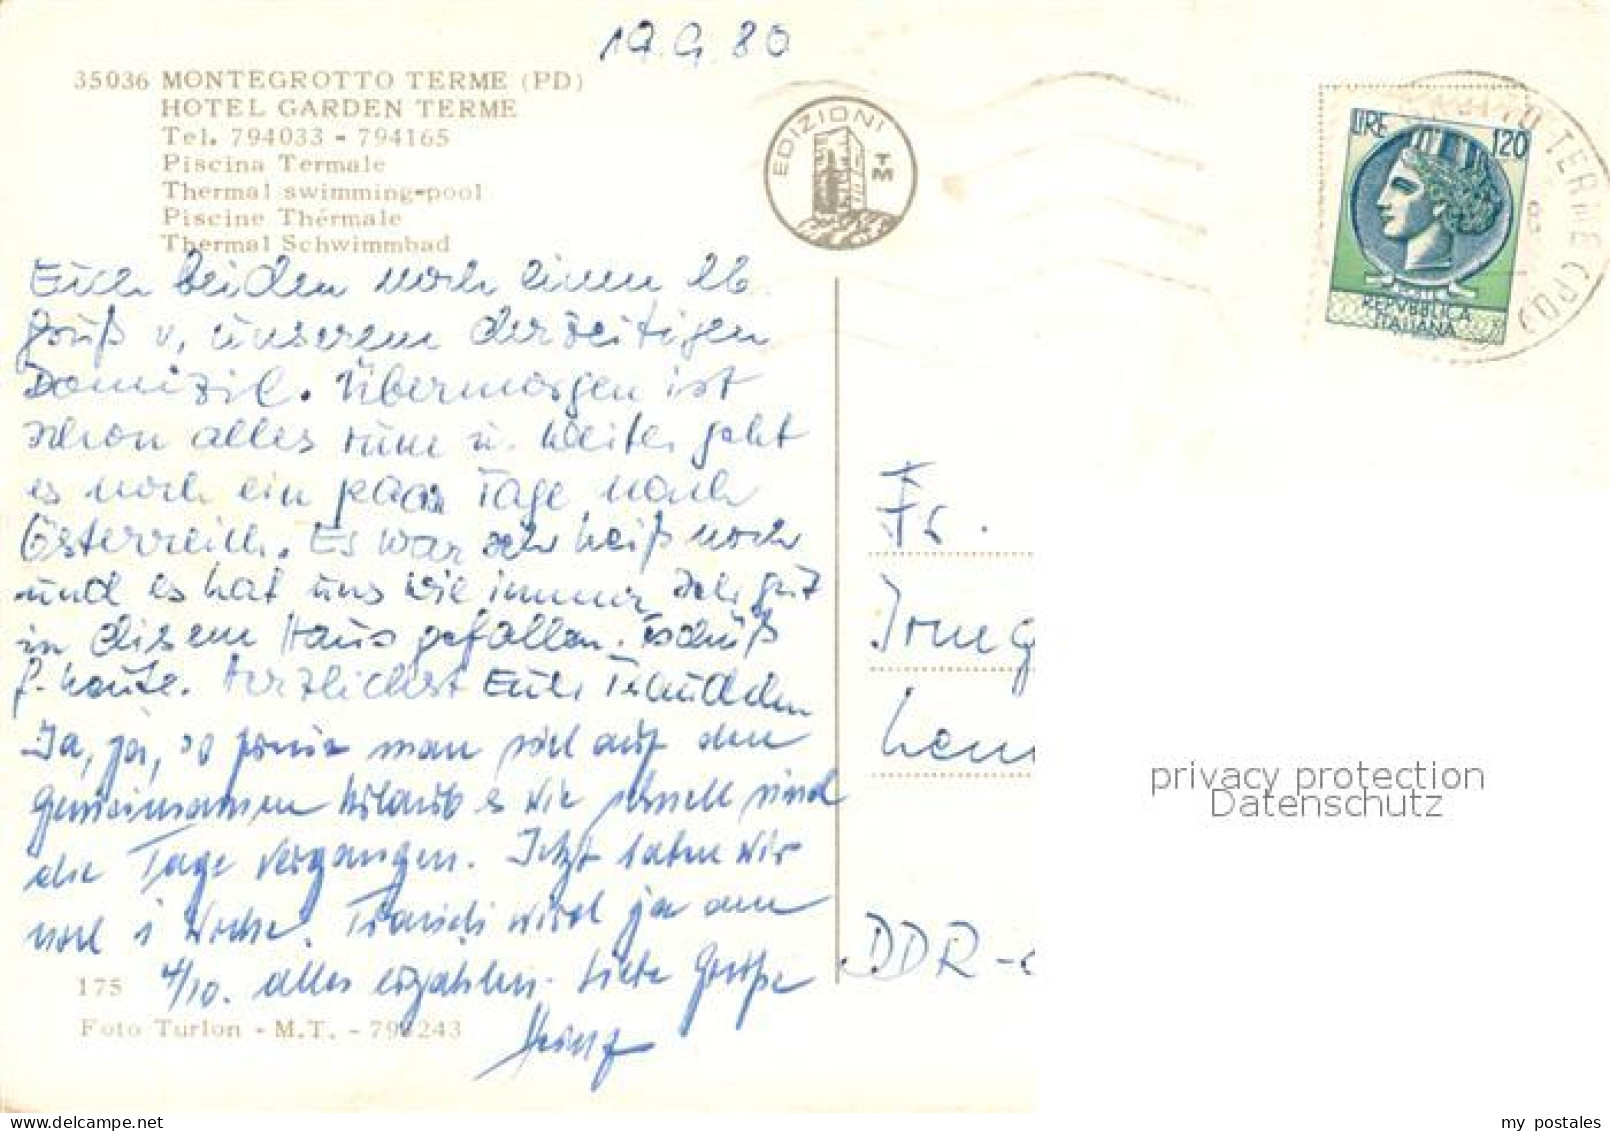 19.9.80
35036 MONTEGROTTO TERME (PD)
HOTEL GARDEN TERME
Tel. 794033 - 794165
Piscina Termale
Thermal swimming-pool
Piscine Thérmale
Thermal Schwimmbad
EDIZIONI
TM
LIRE 120
POSTE
REPVBBLICA
ITALIANA
TERME (PD)
Euch beiden noch einen lb.
Gruß v. unserem derzeitigen
Domizil. Übermorgen ist
schon alles rum u. weiter geht
es noch ein paar Tage nach
Österreich. Es war sehr heiß noch
und es hat uns wie immer sehr gut
in diesem Haus gefallen. Tschüß
f. heute. Herzlichst Eure Traudchen
Ja, ja, so man sich auf den
gemeinsamen Urlaub wie schnell sind
die Tage vergangen. Jetzt haben wir
noch 1 Woche. wird ja am
4/10. alles erzählen. Liebe Grüße
Heinz
Fr.
Irmg
DDR-
175
Foto Turlon - M.T. - 793243
privacy protection
Datenschutz
my postales